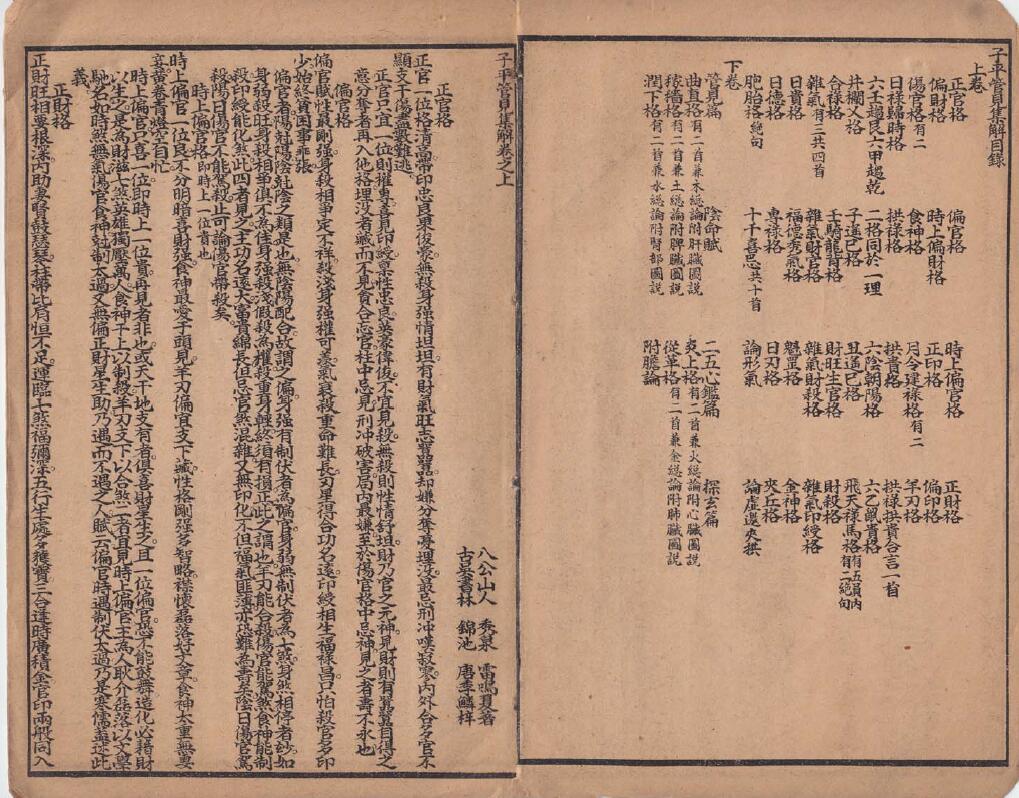 子平管見集解目錄
上卷
正官格 偏官格 時上偏官格 正財格
偏財格 時上偏財格 正印格 偏印格
傷官格有二 食神格 月令建祿格有二 羊刃格
日祿歸時格 拱祿格 拱貴格 拱祿拱貴合言一首
六壬趨艮六甲趨乾 二格同於一理 六陰朝陽格 六乙鼠貴格
井欄叉格 子遙巳格 丑遙巳格 飛天祿馬格有五員內有二絕句
合祿格 壬騎龍背格 財旺生官格 財殺格
雜氣有三共四首 雜氣財官格 雜氣財殺格 雜氣印綬格
日貴格 福德秀氣格 魁罡格 金神格
日德格 專祿格 日刃格 夾丘格
胞胎格絕句 十干喜忌共十首 論形氣 論虛邀夾拱
下卷
管見篇 陰命賦 二五心鑑篇 探玄篇
曲直格有一首兼木總論附肝臟圖說 炎上格有二首兼火總論附心臟圖說
稼穡格有一首兼土總論附脾臟圖說 從革格有二首兼金總論附肺臟圖說
潤下格有一首兼水總論附腎部圖說 附膽論
子平管見集解卷之上
八公山人 秀泉 雷鳴夏著
古吳書林 錦池 唐季麟梓
正官格
正官一位格清高帶印忠良果俊豪無殺身強情坦坦有財氣旺志囂囂却嫌分奪憂埋沒最忌刑冲嘆寂寥內外合多官不
顯支干傷盡難逃
正官只宜一位則權尊喜見印綬稟性忠良英豪偉俊不宜見殺無殺則性情舒坦財乃官之元神見財則有囂囂自得之
意分奪者再入他格埋沒者藏而不見貪合忘官柱中忌見刑冲破害局內最嫌至於傷官格中忌神見之者壽不永也
偏官格
偏官賦性最剛強身殺相爭定不祥殺淺身強權可羨氣衰殺重命難長刃星得合功名遂印綬相生福祿昌只怕殺官多印
少始終貧困事乖張
偏官者陽尅陽陰尅陰之類是也無陰陽配合故謂之偏身強有制伏者為偏官身弱無制伏者為七煞身煞相停者妙如
身弱殺旺身殺相爭俱不為佳身強殺淺假殺為權殺重身輕終須有損正此之謂也羊刃能合殺傷官能駕煞食神能制
殺印綬能化煞此四者見之主功名遂大富貴綿長但忌官煞混雜又無印化不但福氣匪薄亦恐難為壽矣陰日傷官駕
殺陽日傷官不能駕殺止可論傷官帶殺矣
時上偏官格即時上一位貴也
時上偏官一位良不分明暗喜財強食神最愛干頭見羊刃偏宜支下藏性格剛強多智略襟懷磊落好文章食神太重無妻
妾黃卷青燈空自忙
時上偏官只喜一位即時上一位貴再見者非也或天干地支有者俱喜財星生之且一位偏官恐不能鼓舞造化必藉財
以生之是為財滋七煞英雄獨壓萬人食神干上以制殺羊刃支下以合煞二者宜見時上偏官主為人耿介磊落以文學
馳名如時煞無氣傷官食神尅制太過又無偏正財星生助乃遇而不遇之人賦云偏官時遇制伏太過乃是寒儒蓋述此
義
正財格
正財旺相要根深內助妻賢鼓瑟琴柱帶比肩恒不足運臨七煞福彌深五行生處多獲寶三合逢時廣積金官印兩般同入